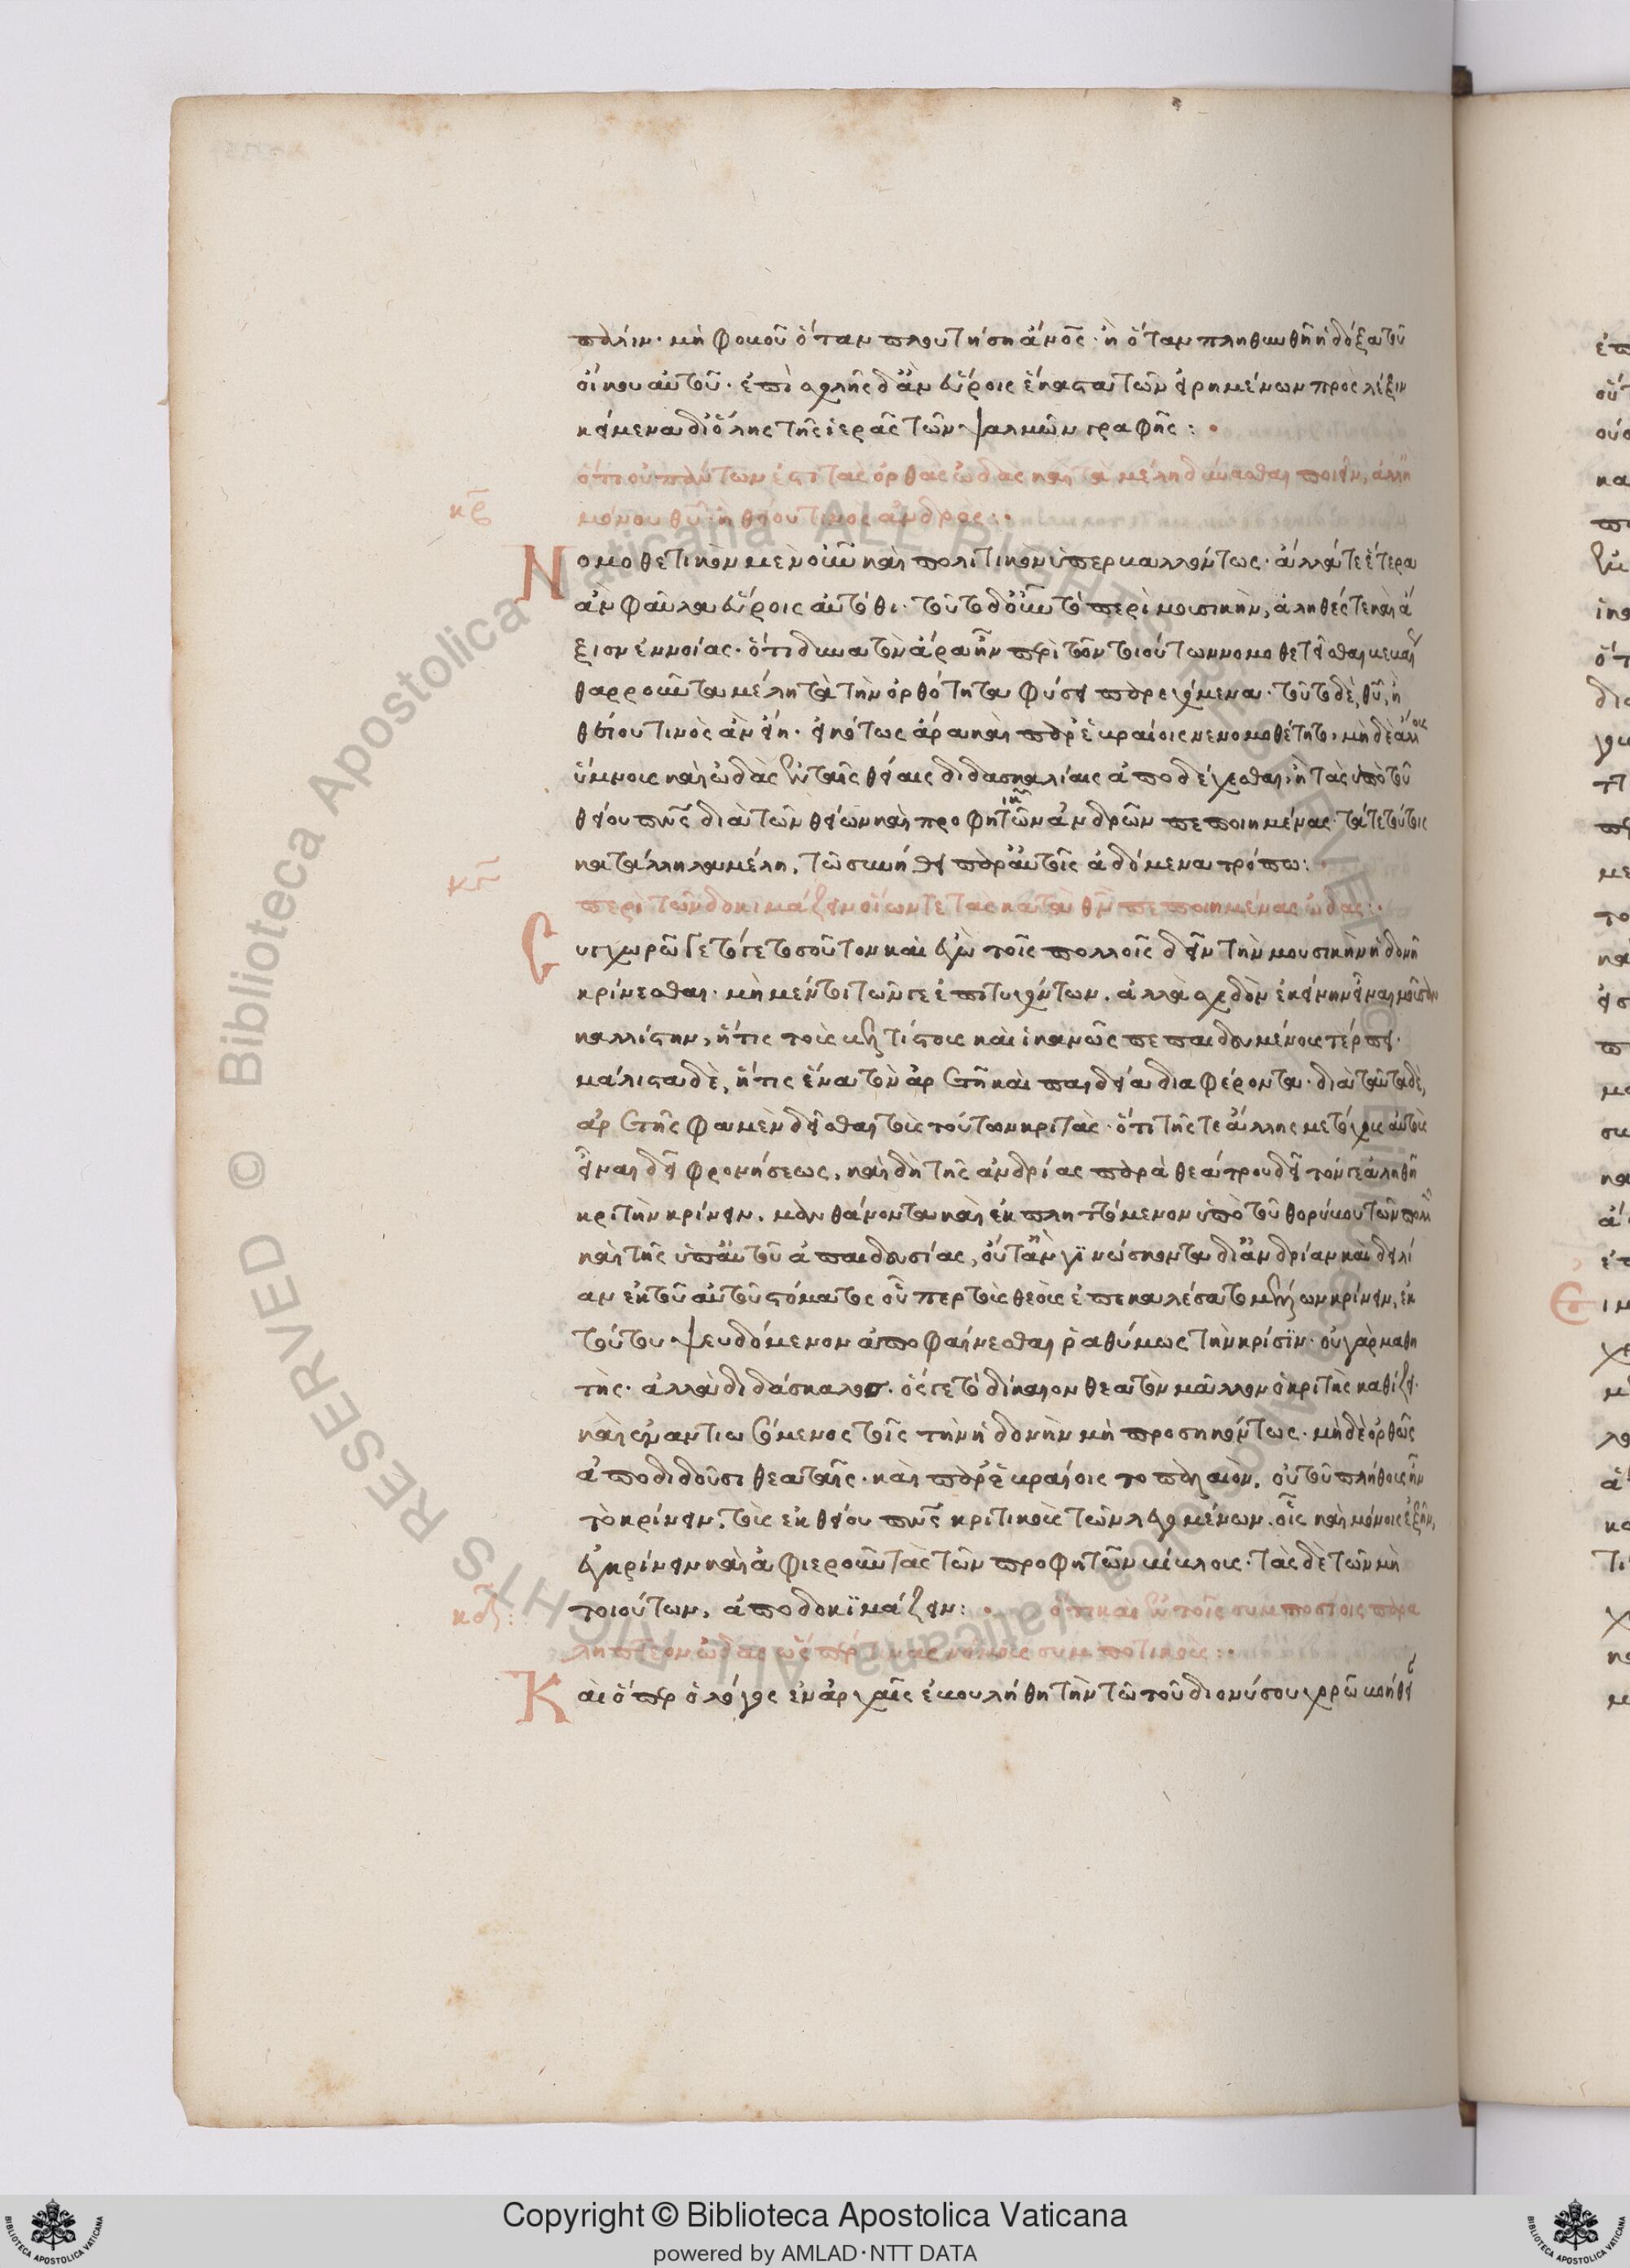 πάλιν· μὴ φοβοῦ ὅταν πλουτήσῃ ἄνος· ἢ ὅταν πληθυνθῇ ἡ δόξα τοῦ
οἴκου αὐτοῦ· ἐπὶ σχολῆς δ' ἂν εὕροις ἕκαστα τῶν εἰρημένων πρὸς λέξιν
κείμενα δι' ὅλης τῆς ἱερᾶς τῶν ψαλμῶν γραφῆς:
ὅτι οὐ πάντων ἐστὶ τὰς ὀρθὰς ὠδὰς καὶ τὰ μέλη δύνασθαι ποιεῖν, ἀλλ' ἢ
κζ μόνου θυ ἢ θείου τινὸς ἀνδρός:
Νομοθετικὸν μὲν οὖν καὶ πολιτικὸν ὑπερβαλλόντως· ἀλλ' ἄττα ἕτερα
ἂν φαῦλα εὕροις αὐτόθι· τοῦτο δ' οὖν τὸ περὶ μουσικὴν, ἀληθές τε καὶ ἄ
ξιον ἐννοίας· ὅτι δυνατὸν ἄρα ἦν περὶ τῶν τοιούτων νομοθετεῖσθαι βεβαίως
θαρροῦντα μέλη τὰ τὴν ὀρθότητα φύσει παρεχόμενα· τοῦτο δὲ, θυ, ἢ
θείου τινὸς ἂν εἴη· εἰκότως ἄρα καὶ παρ' ἑβραίοις νενομοθέτητο, μὴ δὲ ἄλλους
ὕμνους καὶ ὠδὰς ἐν ταῖς θείαις διδασκαλίαις ἀποδέχεσθαι, ἢ τὰς ὑπὸ τοῦ
θείου πνς διὰ τῶν θείων καὶ προφητικῶν ἀνδρῶν πεποιημένας· τά τε τούτοις
κατάλληλα μέλη, τῷ συνήθει παρ' αὐτοῖς ᾀδόμενα τρόπῳ:
κη
περὶ τῶν δοκιμάζειν οἵων τε τὰς κατὰ θν πεποιημένας ὠδάς:
Συγχωρῶ γε τό γε τοσοῦτον καὶ ἐγὼ τοῖς πολλοῖς δεῖν τὴν μουσικὴν ἡδονῇ
κρίνεσθαι· μὴ μέντοι τῶν γε ἐπιτυχόντων, ἀλλὰ σχεδὸν ἐκείνην εἶναι μοῦσαν
καλλίστην, ἥτις τοὺς βελτίστους καὶ ἱκανῶς πεπαιδευμένους τέρπει·
μάλιστα δὲ, ἥτις ἕνα τὸν ἀρετῇ καὶ παιδείᾳ διαφέροντα· διὰ ταῦτα δὲ,
ἀρετῆς φαμὲν δεῖσθαι τοὺς τούτων κριτὰς· ὅτι τῆς τε ἄλλης μετόχους αὐτοὺς
εἶναι δεῖ φρονήσεως, καὶ δὴ τῆς ἀνδρίας παρὰ θεάτρου δεῖ τόν γε ἀληθῆ
κριτὴν κρίνειν, μανθάνοντα καὶ ἐκπληττόμενον ὑπὸ τοῦ θορύβου τῶν πολλῶν
καὶ τῆς ὑπ' αὐτοῦ ἀπαιδευσίας, οὔτ' ἂν γϊνώσκοντα δι' ἀνδρίαν καὶ δειλί
αν ἐκ τοῦ αὐτοῦ στόματος οὗπερ τοὺς θεοὺς ἐπεκαλέσατο μέλλων κρίνειν, ἐκ
τούτου ψευδόμενον ἀποφαίνεσθαι ῥαθύμως τὴν κρίσϊν· οὐ γὰρ μαθη
τὴς· ἀλλὰ διδάσκαλος· ὥς γε τὸ δίκαιον θεατῶν μᾶλλον ὁ κριτὴς καθίζει·
καὶ ἐναντιωσόμενος τοῖς τὴν ἡδονὴν μὴ προσηκόντως· μὴ δὲ ὀρθῶς
ἀποδιδοῦσι θεαταῖς· καὶ παρ' ἑβραίοις το παλαιὸν, οὐ τοῦ πλήθους ἦν
τὸ κρίνειν, τοὺς ἐκ θείου πνς κριτικοὺς τῶν λεγομένων, οἷς καὶ μόνοις ἐξῆν,
ἐγκρίνειν καὶ ἀφιεροῦν τὰς τῶν προφητῶν βίβλους· τὰς δὲ τῶν μὴ
κθ: τοιούτων, ἀποδοκϊμάζειν: ὅτι καὶ ἐν τοῖς συμποσίοις παρα
ληπτέον ὠδὰς ὥσπερ τινὰς νόμους συμποτικούς:
Καὶ ὅπερ ὁ λόγος ἐν ἀρχαῖς ἐβουλήθη τὴν τῷ τοῦ διονύσου χορῷ βοήθει